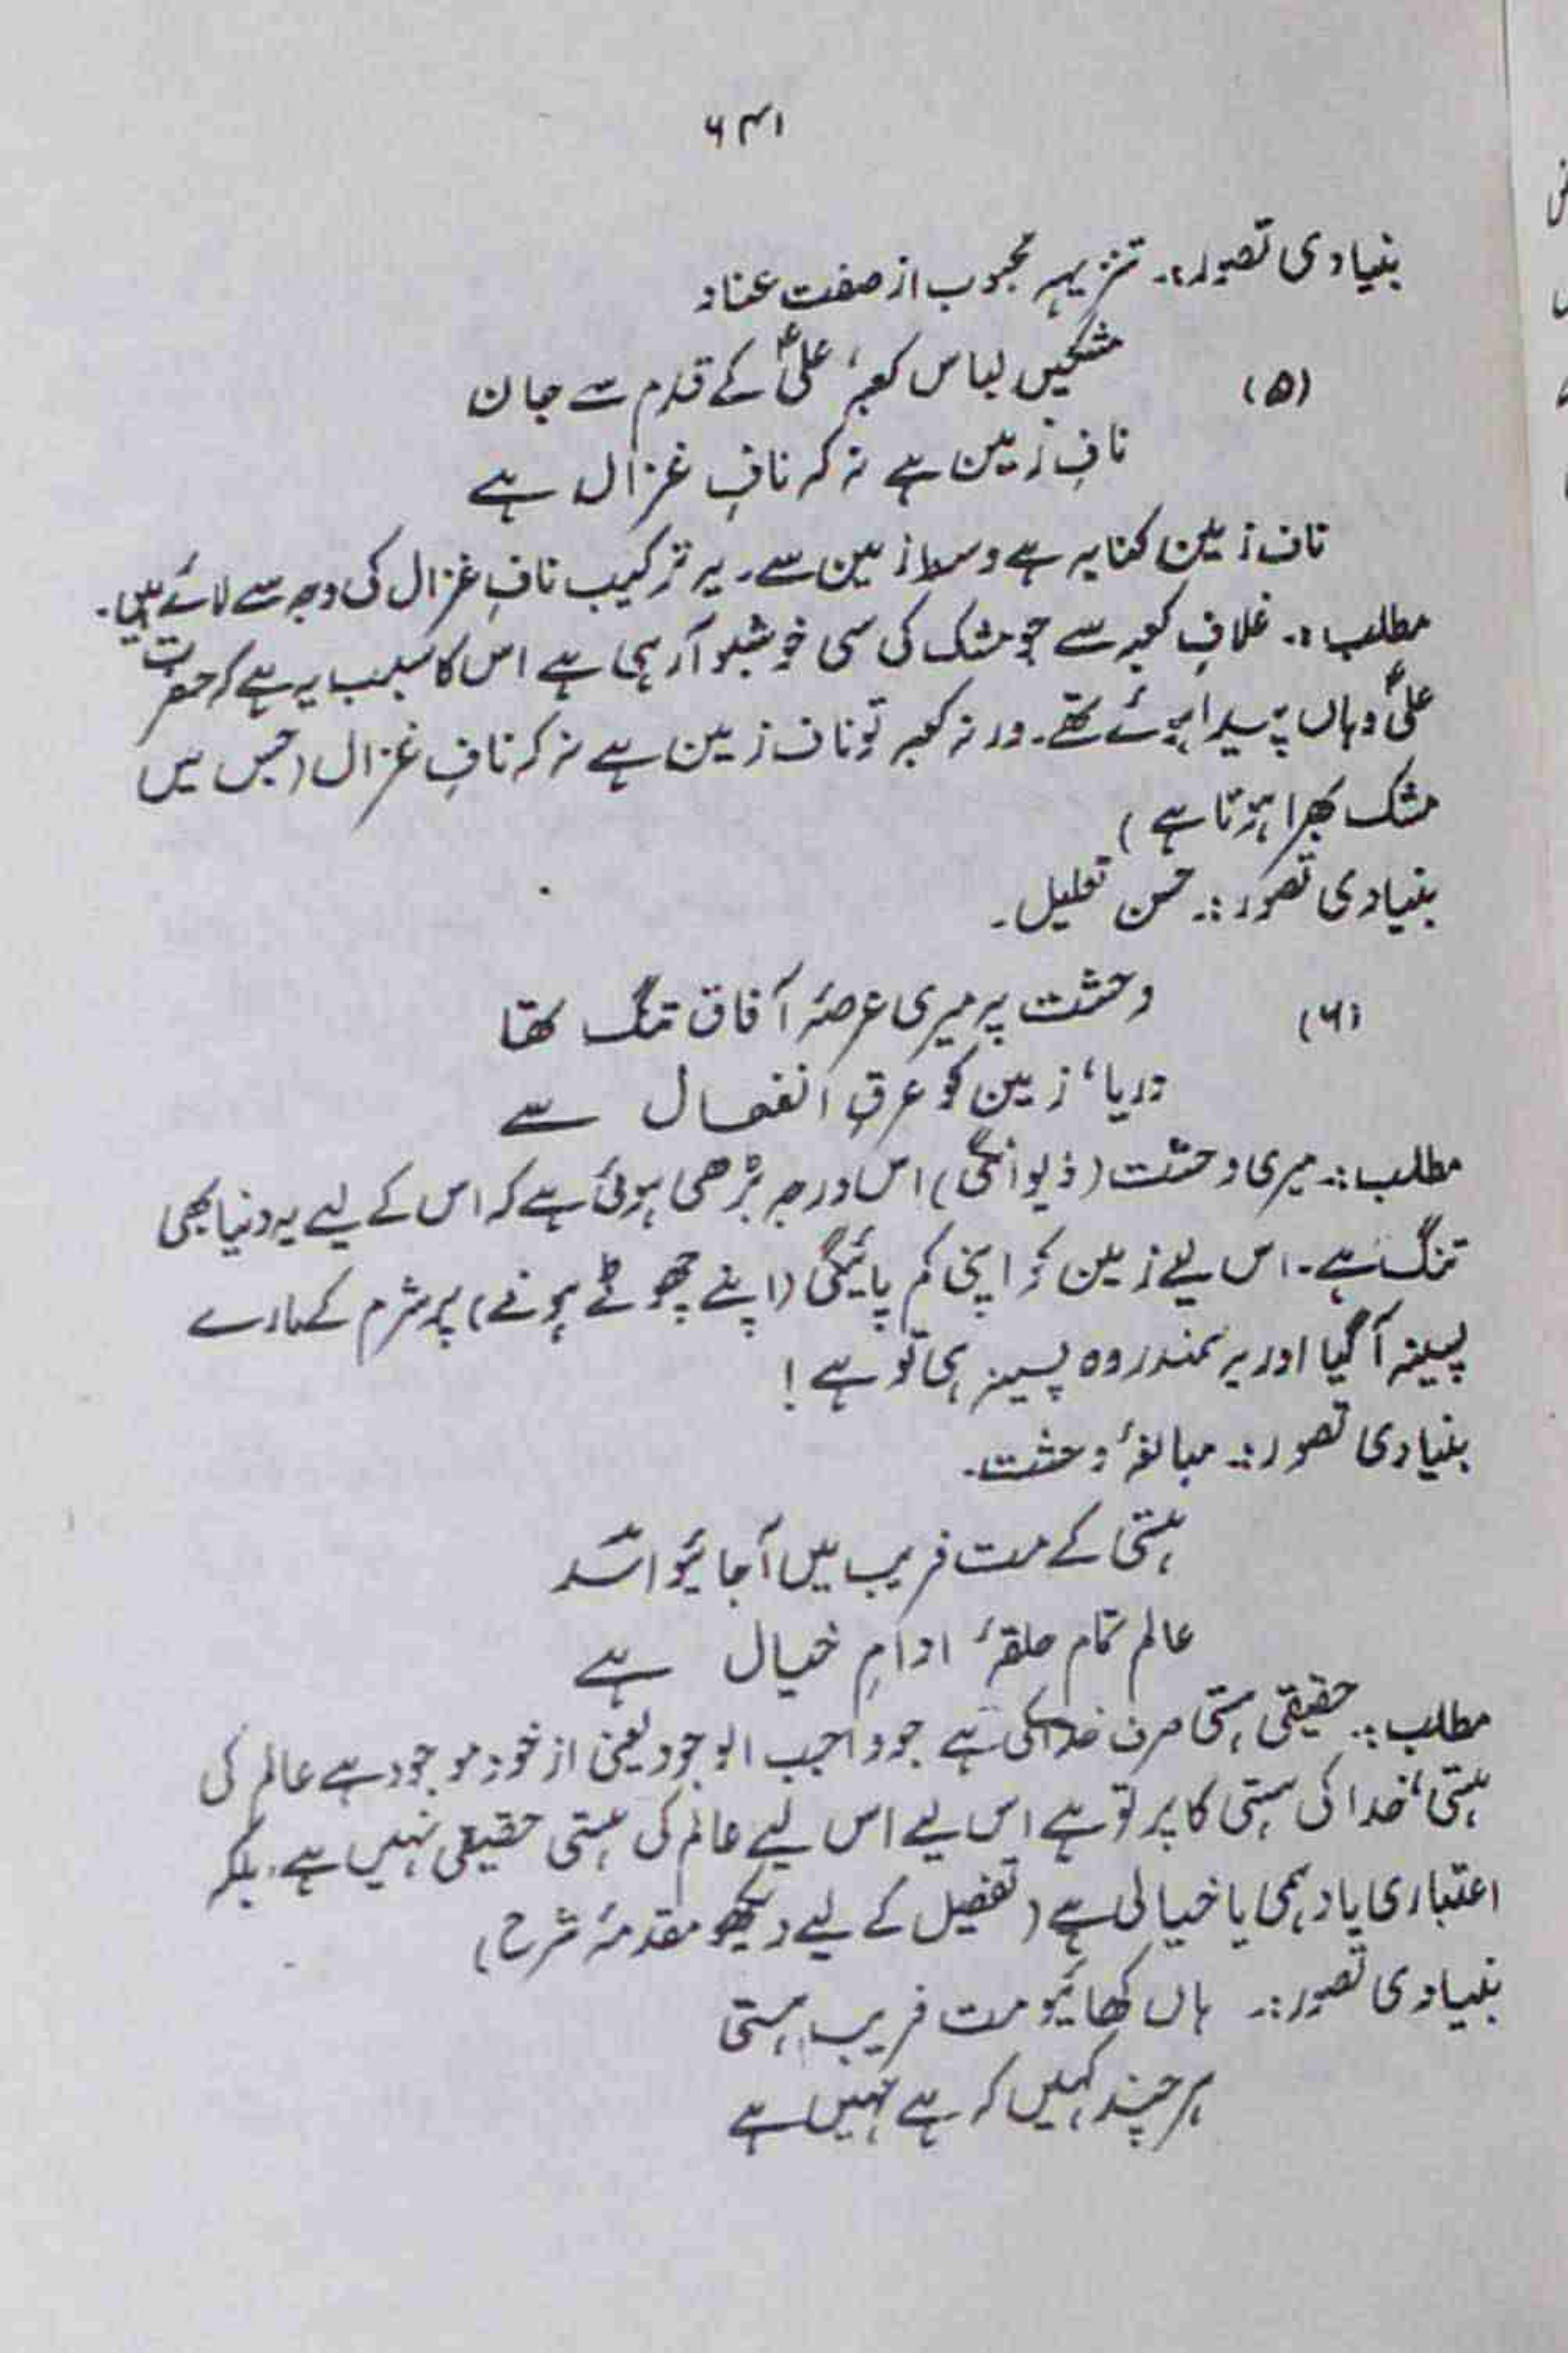 ۶۴۱
بنیادی تصور:۔ تنزیہہ محبوب از صفت عناد
(۵) مشکیں لباس کعبہ، علیؑ کے قدم سے جان
نافِ زمین ہے نہ کہ نافِ غزال ہے
ناف زمین کنایہ ہے وسط زمین سے۔ یہ ترکیب نافِ غزال کی وجہ سے لائے ہیں۔
مطلب:۔ غلافِ کعبہ سے جو مشک کی سی خوشبو آرہی ہے اس کا سبب یہ ہے کہ حضرت
علیؑ وہاں پیدا ہوئے تھے۔ ورنہ کعبہ تو ناف زمین ہے نہ کہ نافِ غزال (جس میں
مشک بھرا ہوتا ہے)
بنیادی تصور:۔ حسن تعلیل۔
(۶) وحشت پہ میری عرصۂ آفاق تنگ تھا
دریا، زمین کو عرقِ انفعال سے
مطلب:۔ میری وحشت (دیوانگی) اس درجہ بڑھی ہوئی ہے کہ اس کے لیے یہ دنیا بھی
تنگ ہے۔ اس لیے زمین کو اپنی کم پائیگی (اپنے چھوٹے ہونے) پر شرم کے مارے
پسینہ آگیا اور یہ سمندر وہ پسینہ ہی تو ہے!
بنیادی تصور:۔ مبالغۂ وحشت۔
ہستی کے مت فریب میں آجائیو اسدؔ
عالم تمام حلقۂ ادامِ خیال ہے
مطلب:۔ حقیقی ہستی صرف خدا کی ہے جو واجب الوجود یعنی از خود موجود ہے عالم کی
ہستی، خدا کی ہستی کا پرتو ہے اس لیے اس لیے عالم کی ہستی حقیقی نہیں ہے۔ بلکہ
اعتباری یا وہمی یا خیالی ہے (تفصیل کے لیے دیکھو مقدمۂ شرح)
بنیادی تصور:۔ ہاں کھائیو مت فریب ہستی
ہر چند کہیں کہ ہے نہیں ہے